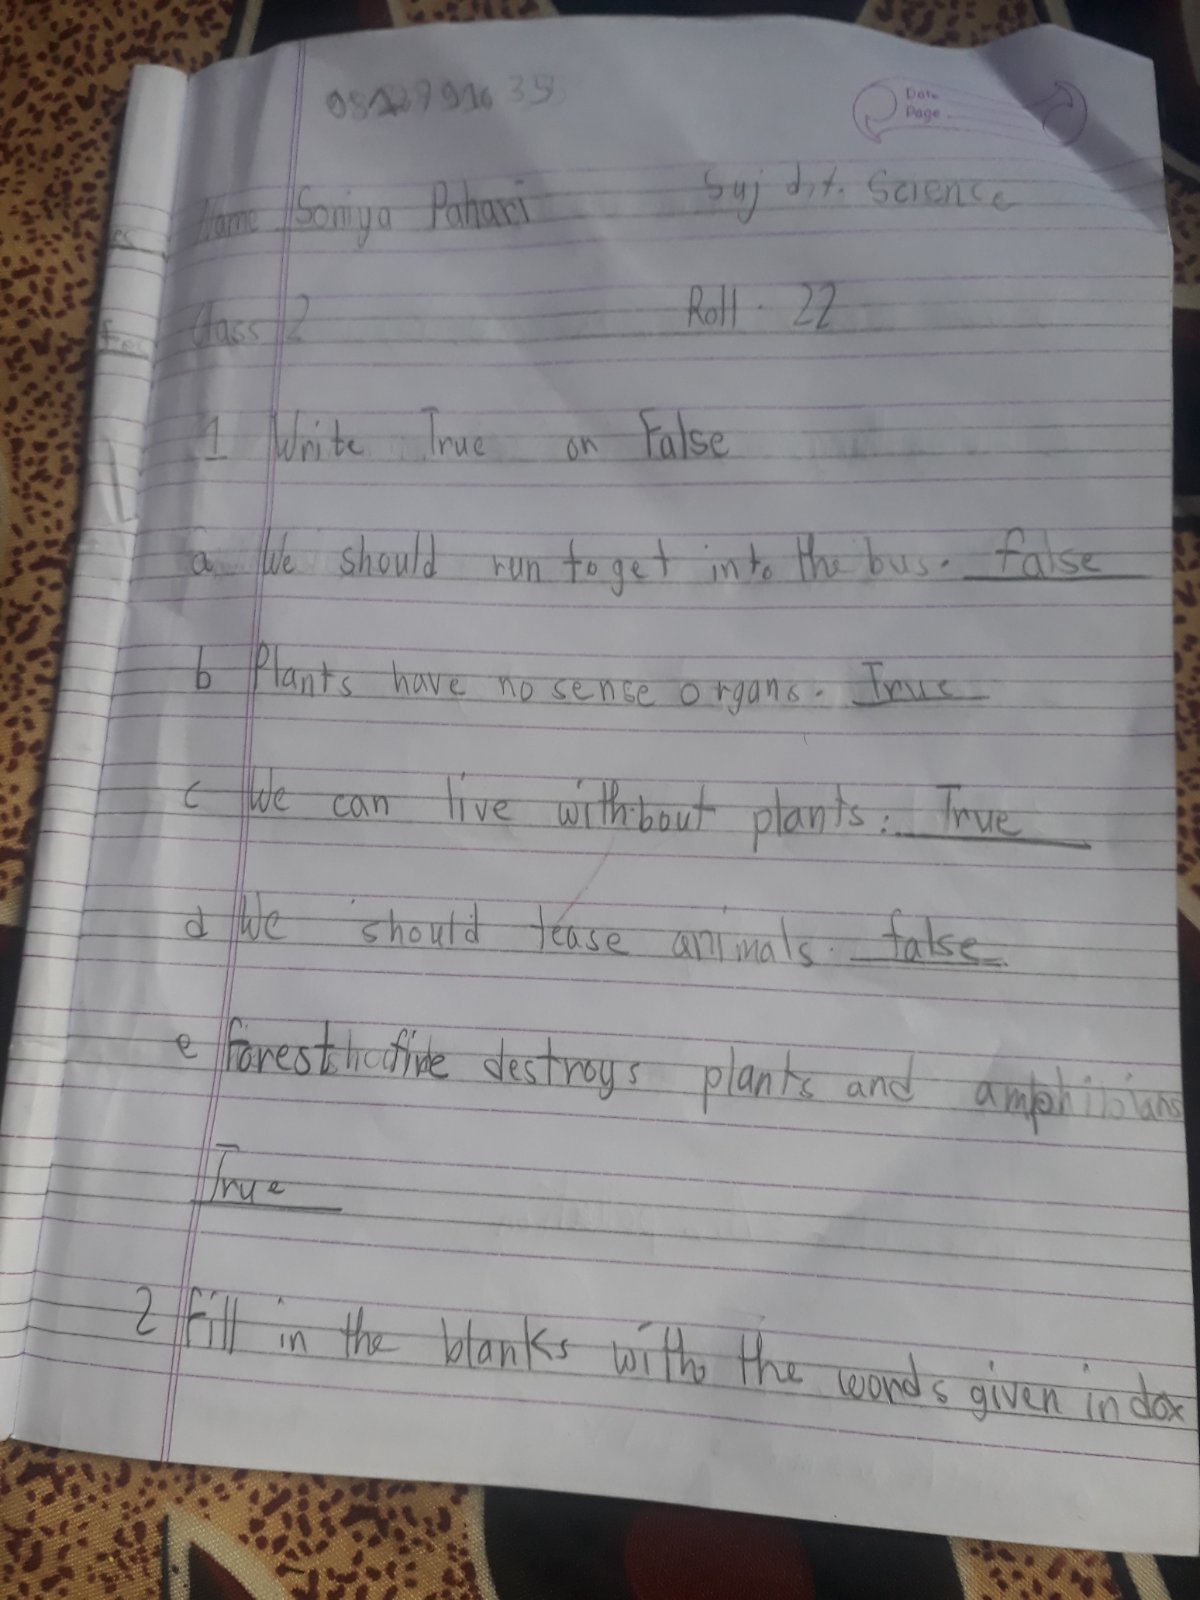 Date
Page
Name Soniya Pahari Suj dit. Science
Class 2 Roll . 22
1 Write True on False
a We should run to get into the bus. false
b Plants have no sense organs. True
c We can live without plants. True
d We should tease animals. false
e forest fire destroys plants and amphibians
True
2 Fill in the blanks with the words given in dox